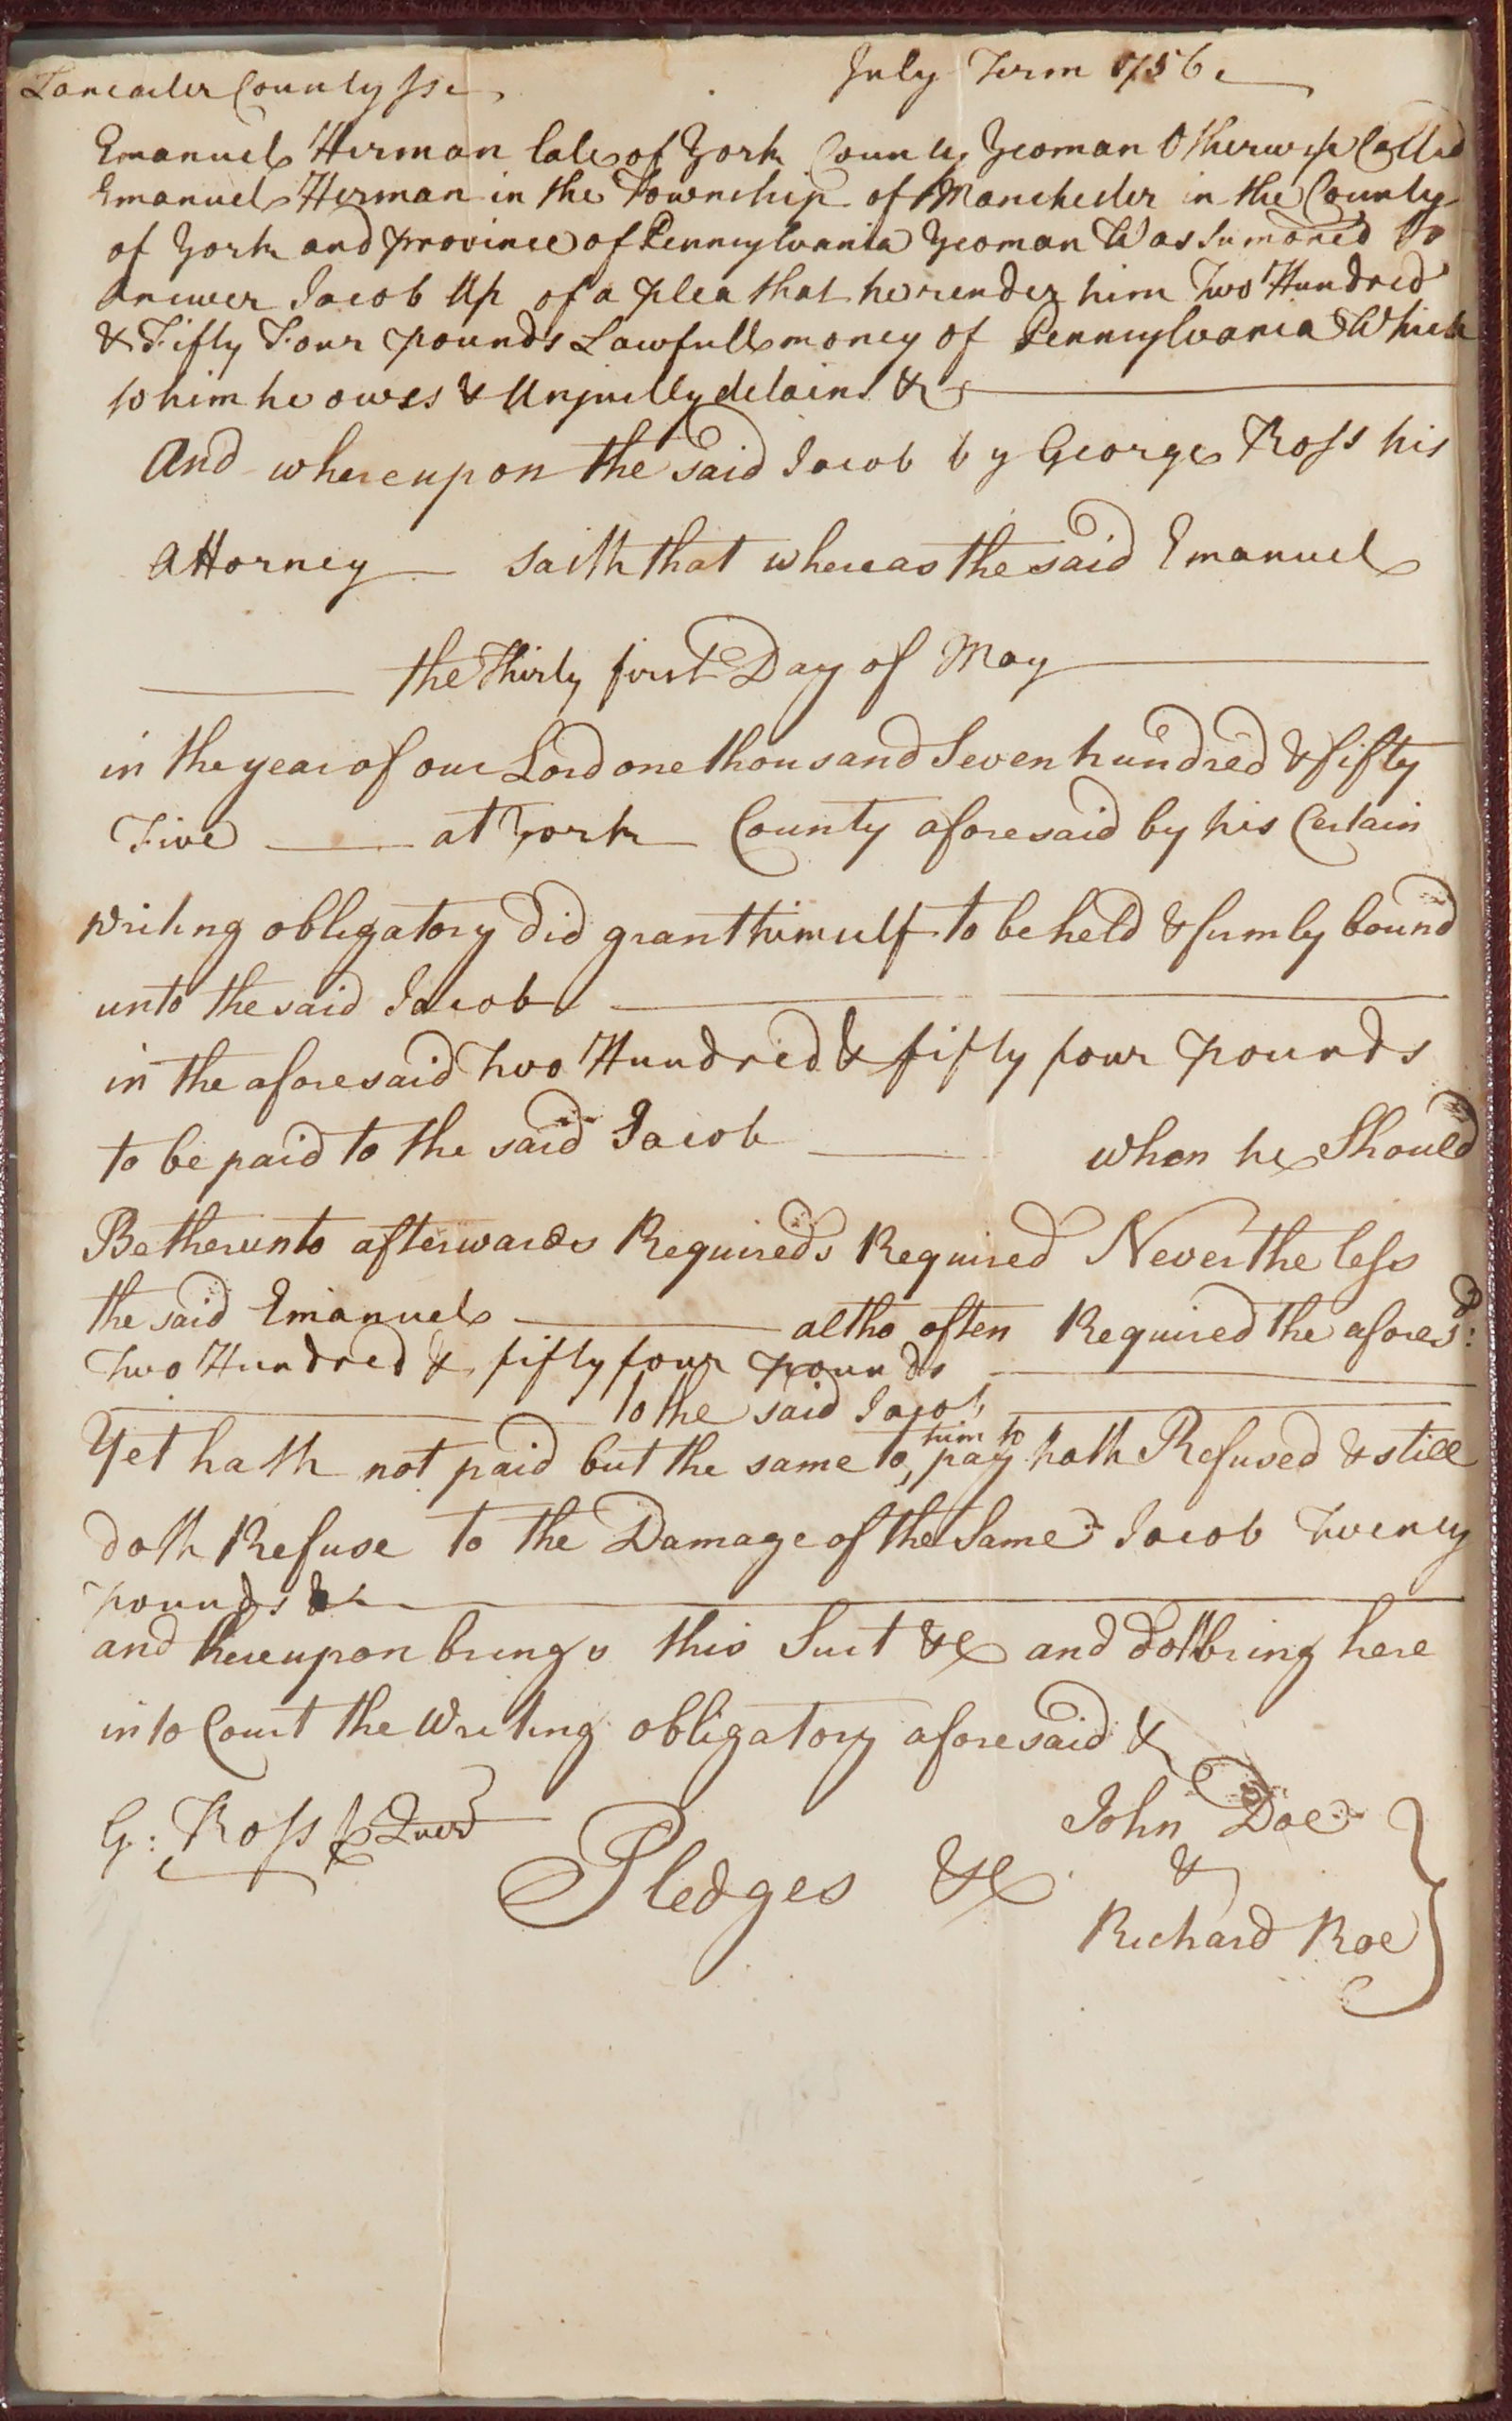 Lancaster County ss July Term 1756
Emanuel Herman late of York County Yeoman Otherwise Called
Emanuel Herman in the Township of Manchester in the County
of York and province of Pennsylvania Yeoman Was Sumoned to
Answer Jacob Up of a plea that he render him Two Hundred
& Fifty Four pounds Lawfull money of Pennsylvania Which
to him he owes & Unjustly detains &c
And whereupon the said Jacob by George Ross his
Attorney saith that whereas the said Emanuel
the Thirty first Day of May
in the year of our Lord one thousand Seven hundred & fifty
Five at York County aforesaid by his Certain
writing obligatory did grant himself to be held & firmly bound
unto the said Jacob
in the aforesaid Two Hundred & fifty four pounds
to be paid to the said Jacob when he Should
Be therunto afterwards Required Required Nevertheless
the said Emanuel altho often Required the afores.d:
Two Hundred & fifty four pounds
to the said Jacob
him to
Yet hath not paid but the same to, pay hath Refused & still
doth Refuse to the Damage of the Same Jacob Twenty
pounds &c
and thereupon brings this Suit &c and doth bring here
into Court the Writing obligatory aforesaid &
G: Ross Quer
Pledges &c
John Doe
&
Richard Roe